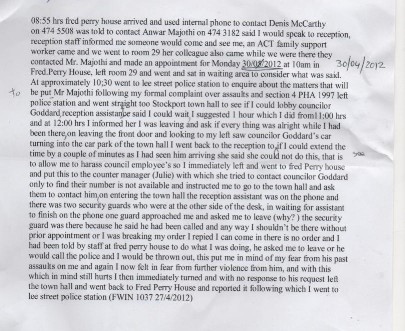 08:55 hrs fred perry house arrived and used internal phone to contact Denis McCarthy
on 474 5508 was told to contact Anwar Majothi on 474 3182 said I would speak to reception,
reception staff informed me someone would come and see me, an ACT family support
worker came and we went to room 29 her colleague also came while we were there they
contacted Mr. Majothi and made an appointment for Monday 30/08/2012 at 10am in 30/04/2012
Fred.Perry House, left room 29 and went and sat in waiting area to consider what was said.
At approximately 10;30 went to lee street police station to enquire about the matters that will
to be put Mr Majothi following my formal complaint over assaults and section 4 PHA 1997 left
police station and went straight too Stockport town hall to see if I could lobby councilor
Goddard,reception assistance said I could wait I suggested 1 hour which I did from11:00 hrs
and at 12:00 hrs I informed her I was leaving and ask if every thing was alright while I had
been there,on leaving the front door and looking to my left saw councilor Goddard's car
turning into the car park of the town hall I went back to the reception to,if I could extend the
time by a couple of minutes as I had seen him arriving she said she could not do this, that is
to allow me to harass council employee's so I immediately left and went to fred Perry house
and put this to the counter manager (Julie) with which she tried to contact councilor Goddard
only to find their number is not available and instructed me to go to the town hall and ask
them to contact him,on entering the town hall the reception assistant was on the phone and
there was two security guards who were at the other side of the desk, in waiting for assistant
to finish on the phone one guard approached me and asked me to leave (why?) the security
guard was there because he said he had been called and any way I shouldn't be there without
prior appointment or I was breaking my order I repied I can come in there is no order and I
had been told by staff at fred perry house to do what I was doing, he asked me to leave or he
would call the police and I would be thrown out, this put me in mind of my fear from his past
assaults on me and again I now felt in fear from further violence from him, and with this
which in mind still hurts I then immediately turned and with no response to his request left
the town hall and went back to Fred Perry House and reported it following which I went to
lee street police station (FWIN 1037 27/4/2012)